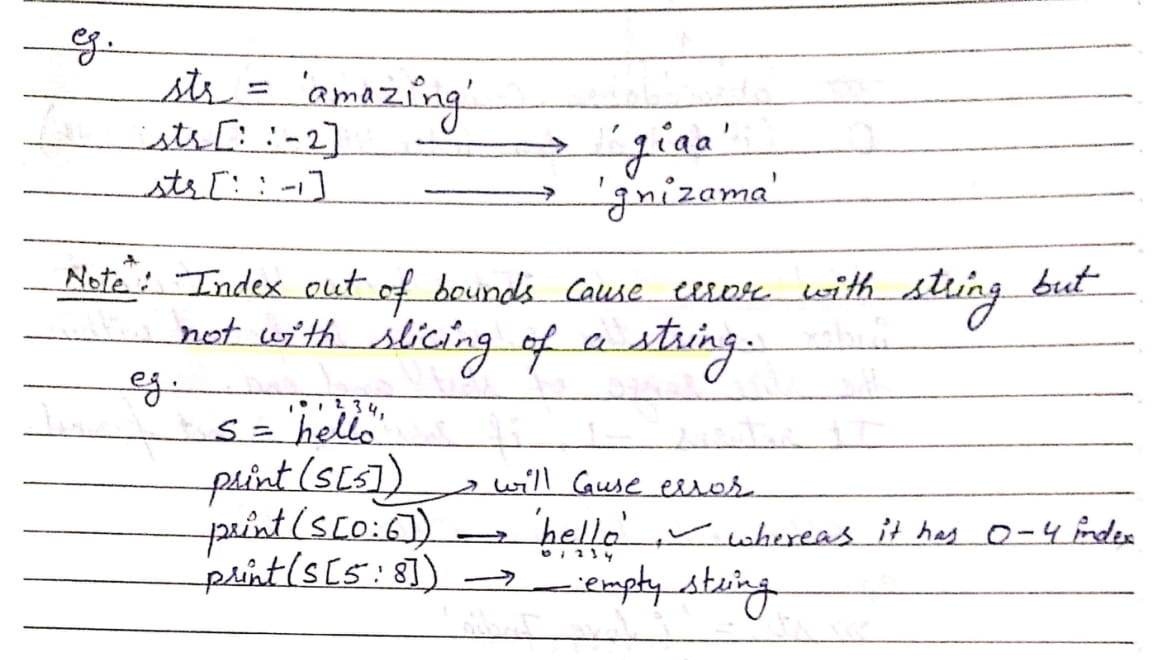 eg.
str = 'amazing'
str[: :-2] → 'giaa'
str[: :-1] → 'gnizama'
Note*: Index out of bounds cause error with string but
not with slicing of a string.
eg.
0 1 2 3 4
s = 'hello'
print(s[5]) → will cause error
print(s[0:6]) → 'hello', ✓ whereas it has 0-4 index
0 1 2 3 4
print(s[5:8]) → empty string